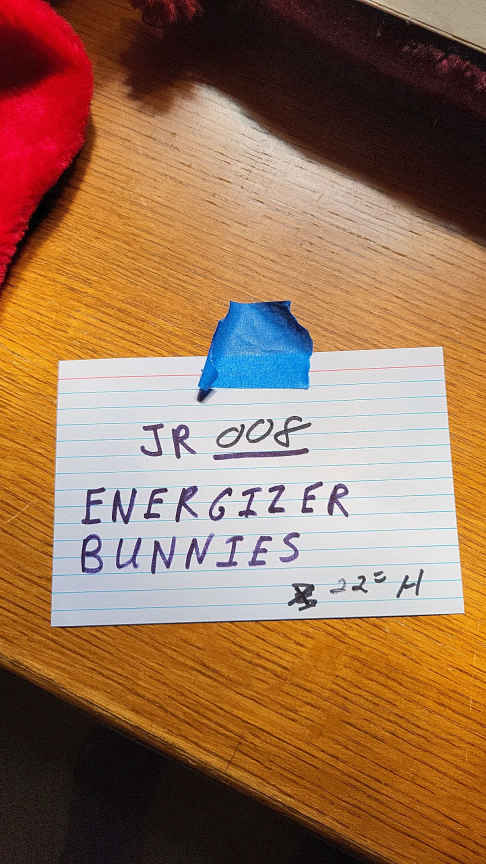 JR 008
ENERGIZER
BUNNIES
22= H